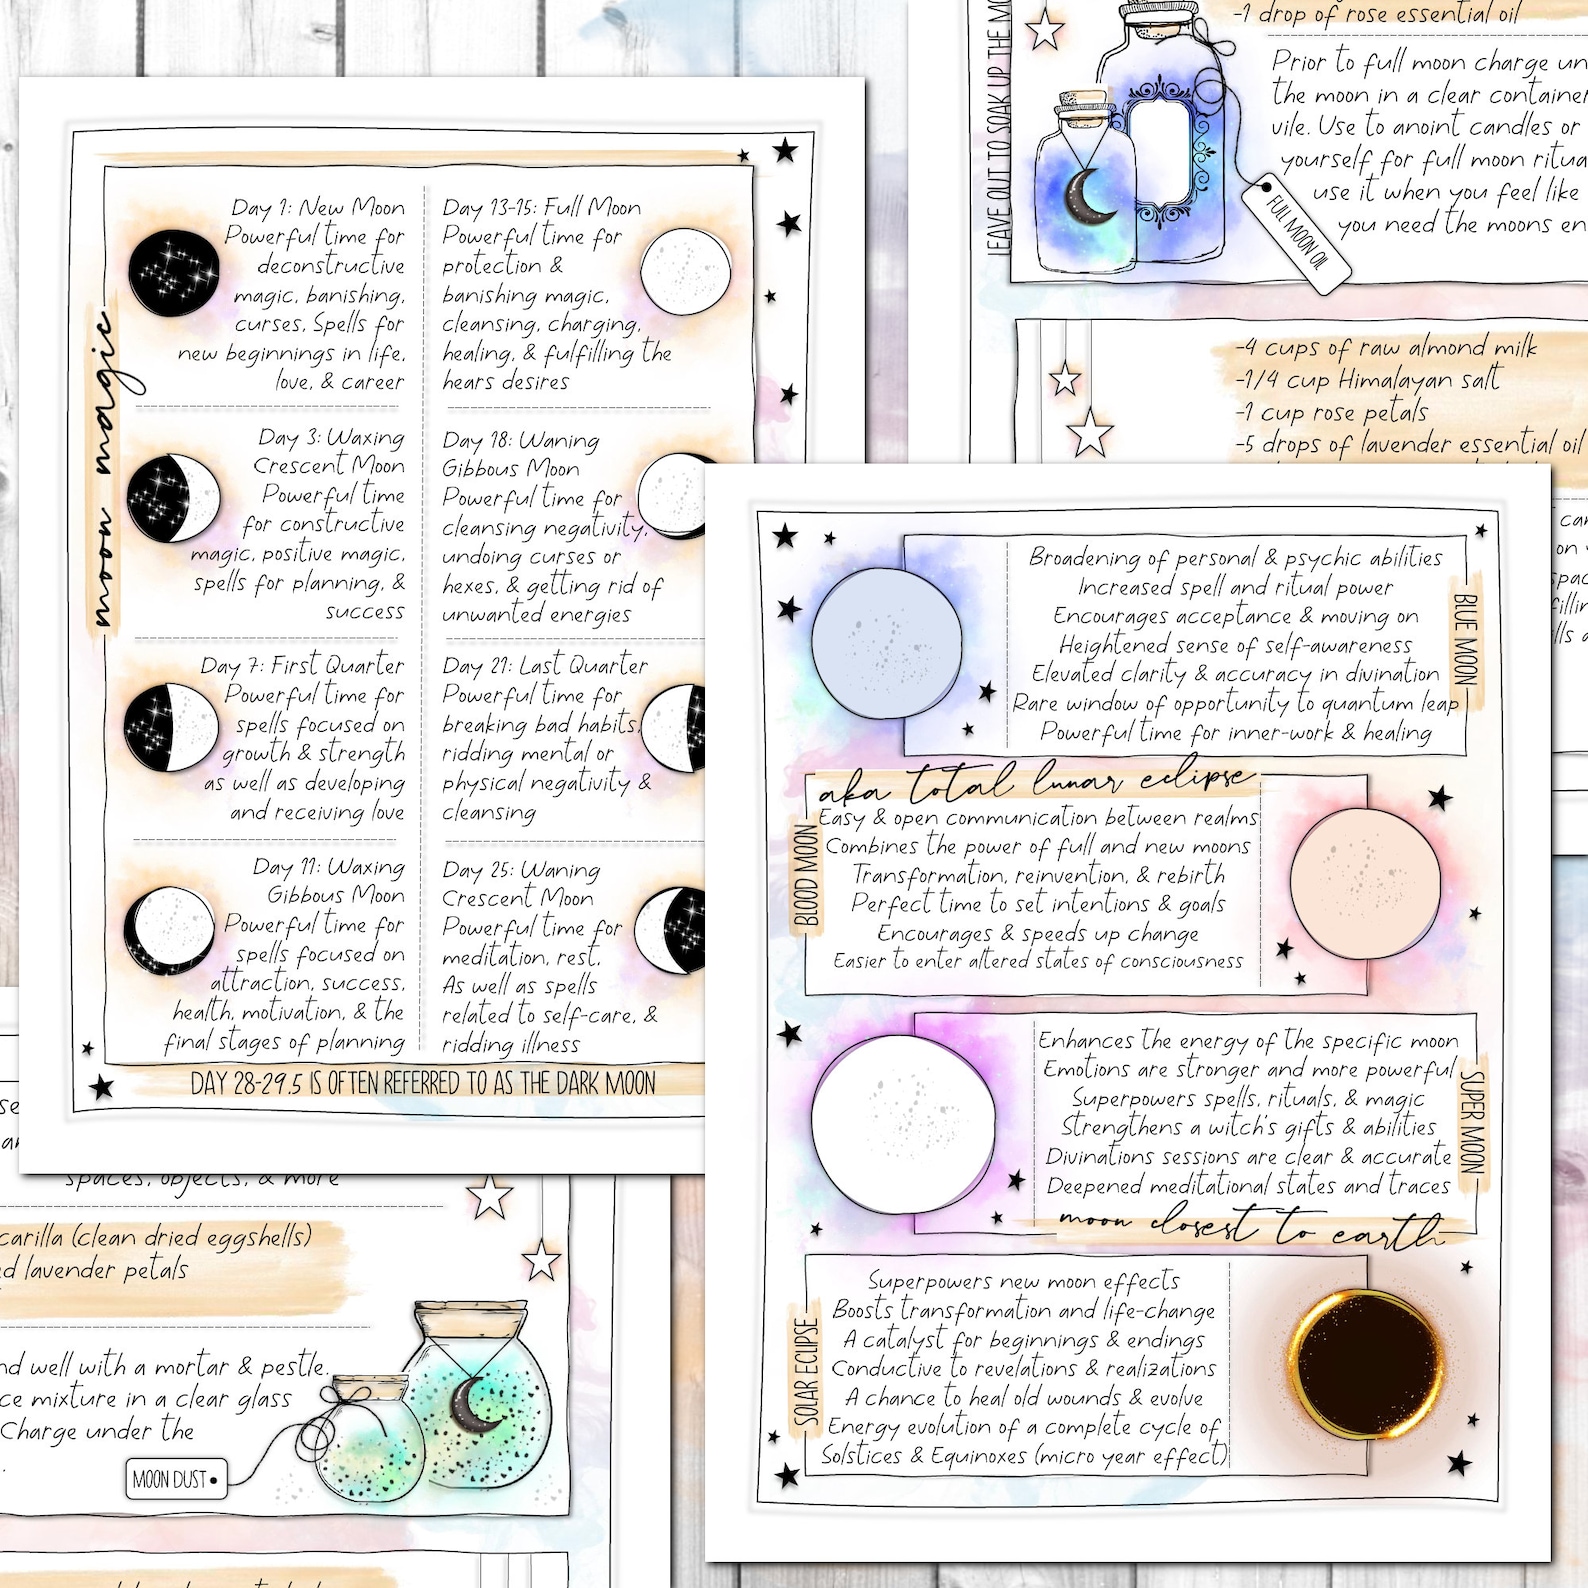 moon magic
Day 1: New Moon
Powerful time for
deconstructive
magic, banishing,
curses, Spells for
new beginnings in life,
love, & career
Day 3: Waxing
Crescent Moon
Powerful time
for constructive
magic, positive magic,
spells for planning, &
success
Day 7: First Quarter
Powerful time for
spells focused on
growth & strength
as well as developing
and receiving love
Day 11: Waxing
Gibbous Moon
Powerful time for
spells focused on
attraction, success,
health, motivation, & the
final stages of planning
Day 13-15: Full Moon
Powerful time for
protection &
banishing magic,
cleansing, charging,
healing, & fulfilling the
hears desires
Day 18: Waning
Gibbous Moon
Powerful time for
cleansing negativity,
undoing curses or
hexes, & getting rid of
unwanted energies
Day 21: Last Quarter
Powerful time for
breaking bad habits,
ridding mental or
physical negativity &
cleansing
Day 25: Waning
Crescent Moon
Powerful time for
meditation, rest,
As well as spells
related to self-care, &
ridding illness
DAY 28-29.5 IS OFTEN REFERRED TO AS THE DARK MOON
LEAVE OUT TO SOAK UP THE
-1 drop of rose essential oil
Prior to full moon charge
the moon in a clear container
vile. Use to anoint candles or
yourself for full moon
use it when you feel like
you need the moons
FULL MOON OIL
-4 cups of raw almond milk
-1/4 cup Himalayan salt
-1 cup rose petals
-5 drops of lavender essential oil
BLUE MOON
Broadening of personal & psychic abilities
Increased spell and ritual power
Encourages acceptance & moving on
Heightened sense of self-awareness
Elevated clarity & accuracy in divination
Rare window of opportunity to quantum leap
Powerful time for inner-work & healing
BLOOD MOON
aka total lunar eclipse
Easy & open communication between realms
Combines the power of full and new moons
Transformation, reinvention, & rebirth
Perfect time to set intentions & goals
Encourages & speeds up change
Easier to enter altered states of consciousness
SUPER MOON
Enhances the energy of the specific moon
Emotions are stronger and more powerful
Superpowers spells, rituals, & magic
Strengthens a witch's gifts & abilities
Divinations sessions are clear & accurate
Deepened meditational states and traces
moon closest to earth
SOLAR ECLIPSE
Superpowers new moon effects
Boosts transformation and life-change
A catalyst for beginnings & endings
Conductive to revelations & realizations
A chance to heal old wounds & evolve
Energy evolution of a complete cycle of
Solstices & Equinoxes (micro year effect)
spaces, objects, & more
(clean dried eggshells)
lavender petals
well with a mortar & pestle.
mixture in a clear glass
Charge under the
MOON DUST